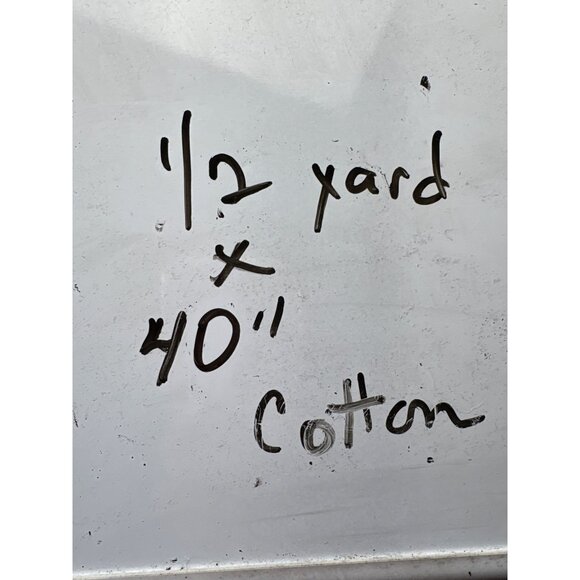 1/2 yard
x
40"
Cotton